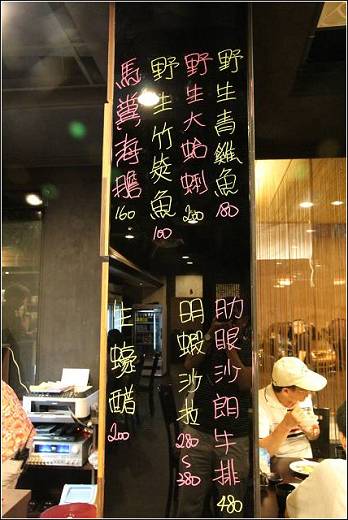 野生青雞魚 180
野生大蛤蜊 200
野生竹筴魚 100
馬糞海膽 160
肋眼沙朗牛排 480
明蝦沙拉 280~380
生蠔醋 200